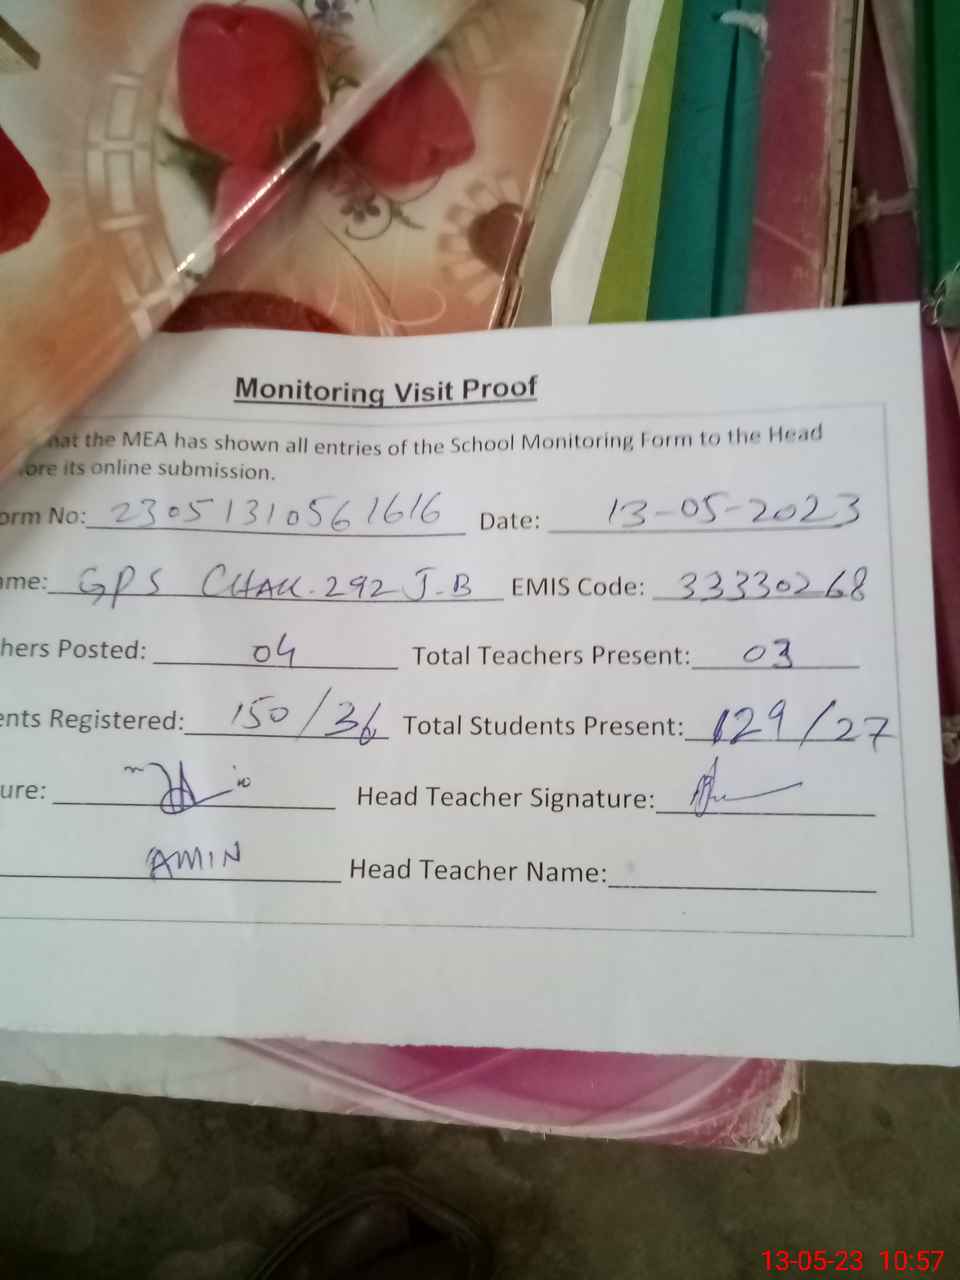 Monitoring Visit Proof
hat the MEA has shown all entries of the School Monitoring Form to the Head
ore its online submission.
orm No: 23051310561616 Date: 13-05-2023
ame: GPS CHAK.292 J-B EMIS Code: 33330268
hers Posted: 04 Total Teachers Present: 03
ents Registered: 150/36 Total Students Present: 129/27
ure: Head Teacher Signature:
AMIN Head Teacher Name:
13-05-23 10:57